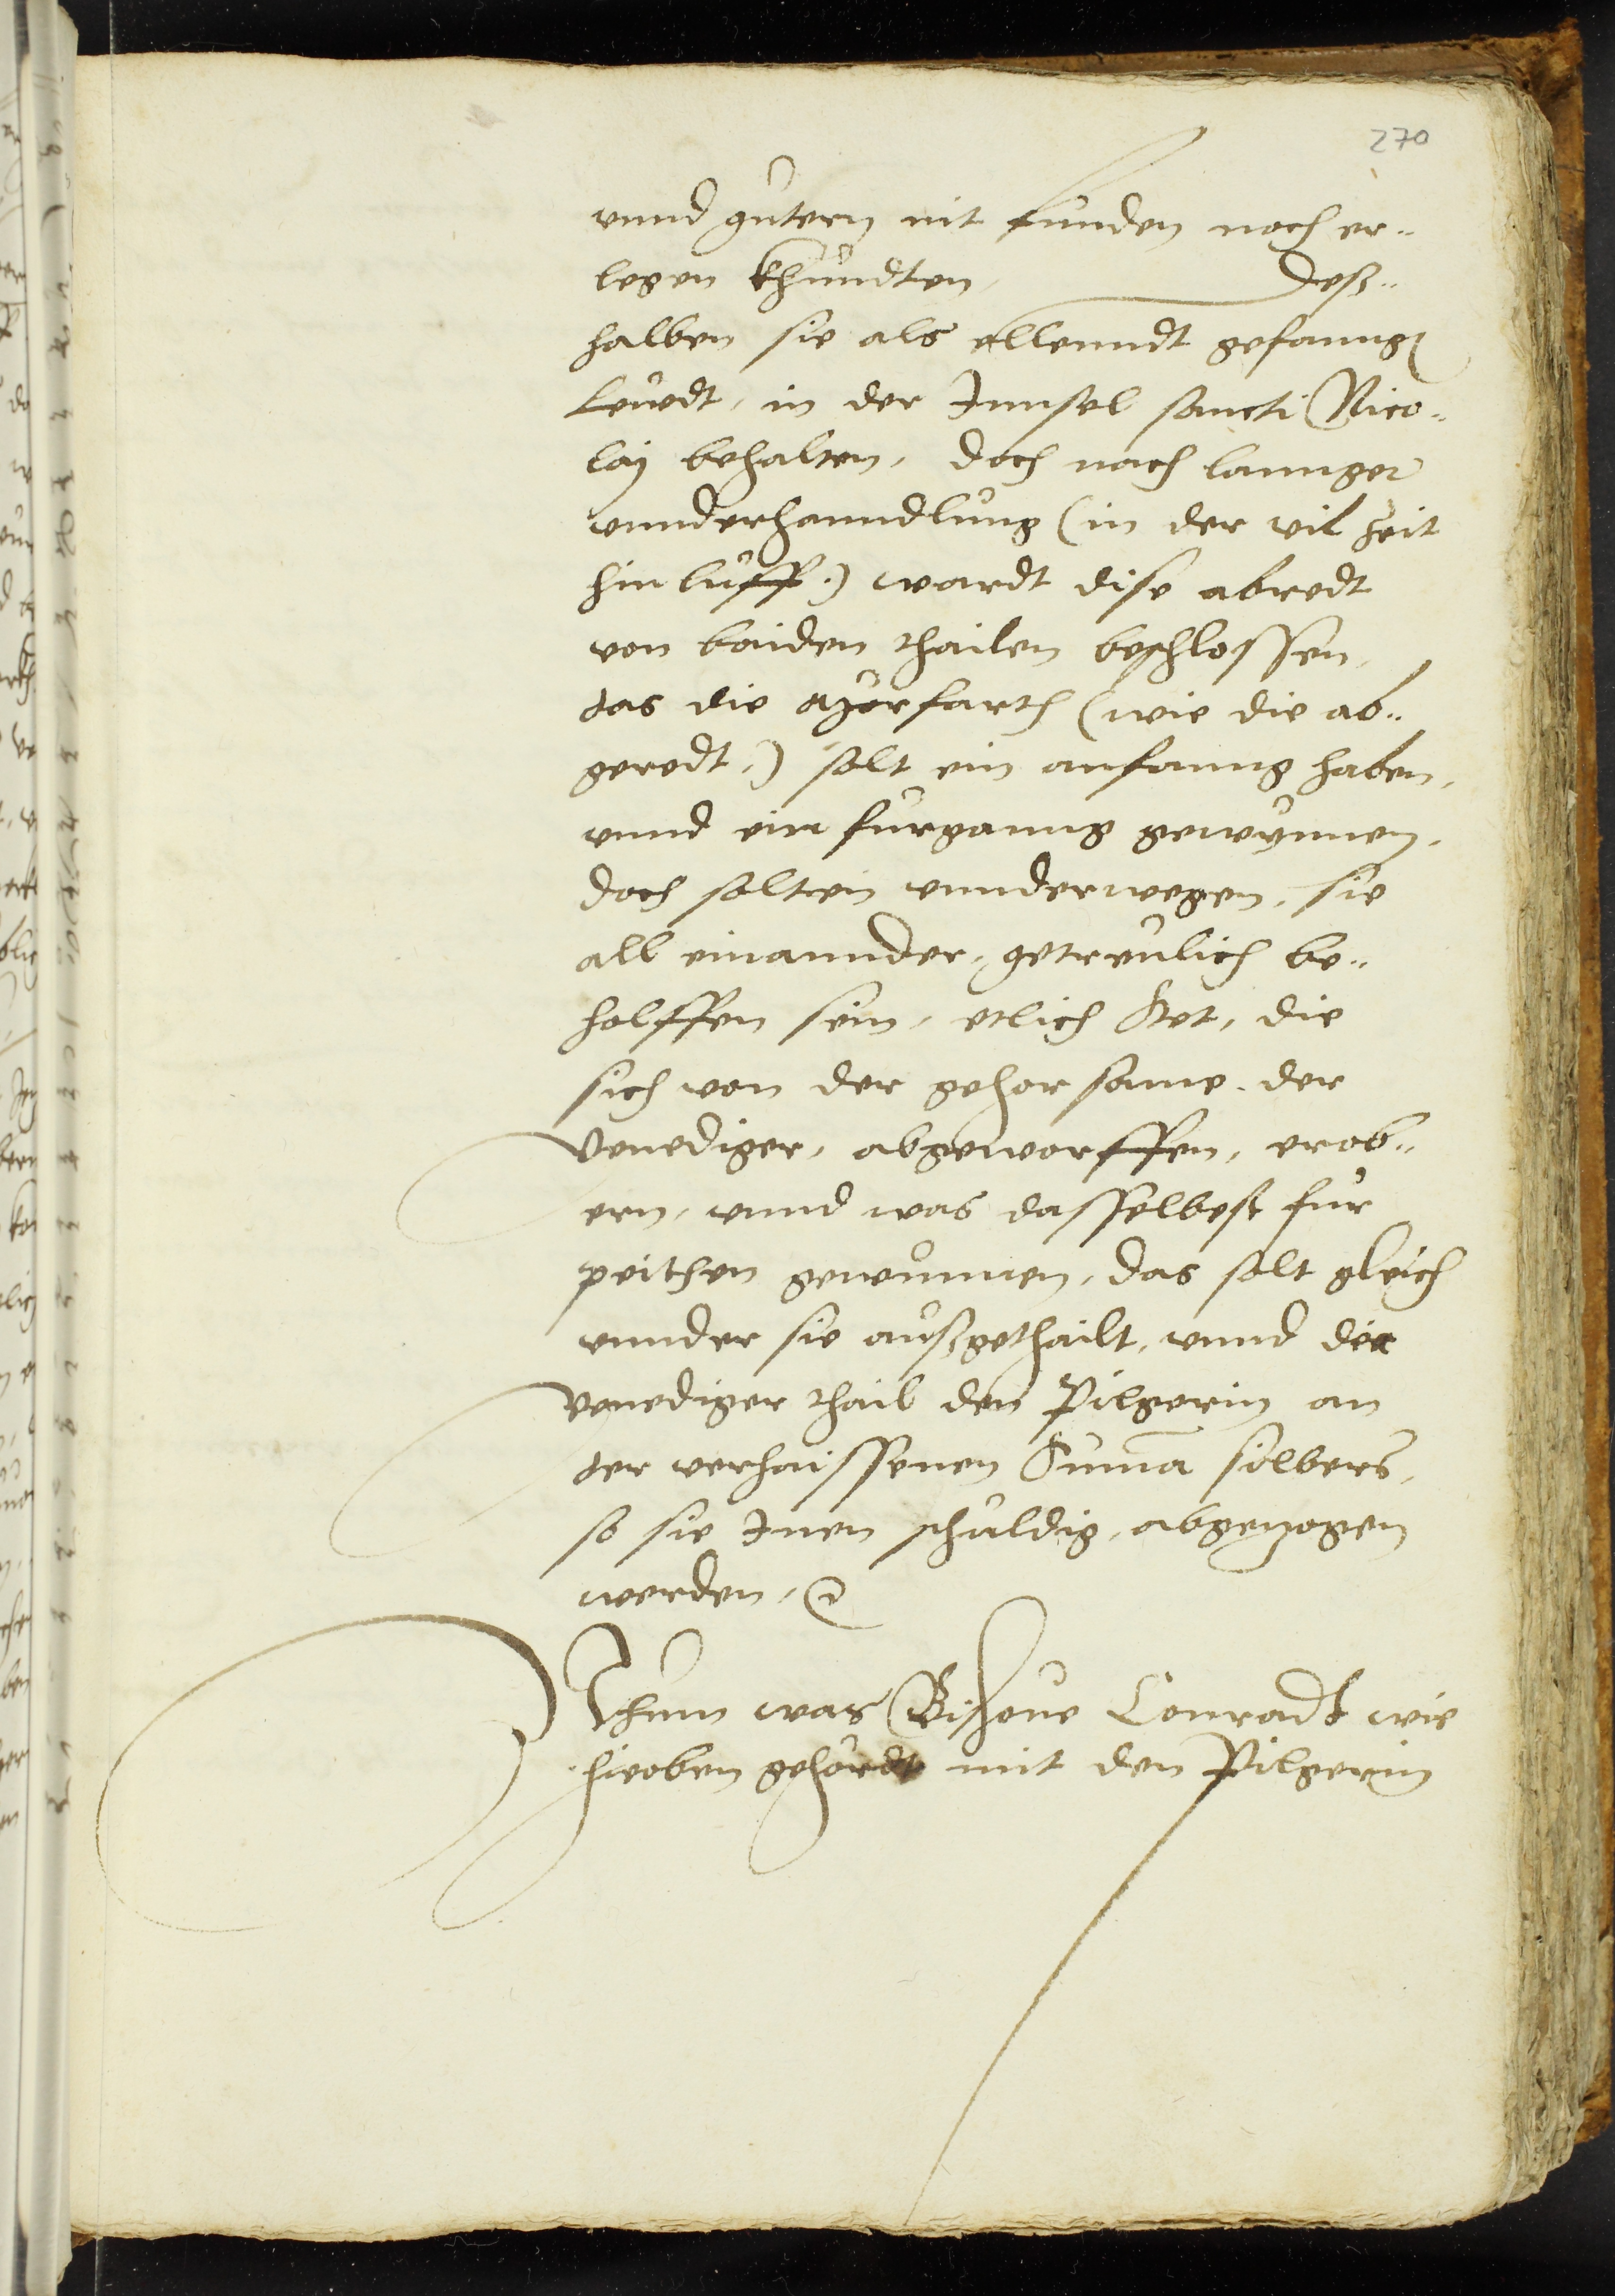 270
vnnd gutern nit funden noch er¬
legen khundten, deß¬
halben sie als ellenndt gefanngen
Leuedt, in der Innsel sancti Nico¬
laj behalten, doch nach lannger
vnnderhanndlung (in der vil Zeit
hin luff:) wardt dise abredt
von baiden thailen beschlossen,
das die Merfarth (wie die ab¬
geredt,) solt ein anfanng haben,
vnnd ein furganng gewynnen,
doch solten vnnderwegen, sie
all einannder, getreulich be¬
holffen sein, etlich Stet, die
sich von der gehorsame der
Venediger, abgeworffen, erob¬
ern, vnnd was dasselbest fur
peithen gewunnen, das solt gleich
vnnder sie außgethailt, vnnd der
Venediger thail den Pilgerin an
der verhaissenen Suma silbers,
so sie Inen schuldig, abgezogen
werden,
Nhun was Bischoue Conradt wie
hieoben gehördt mit den Pilgerin